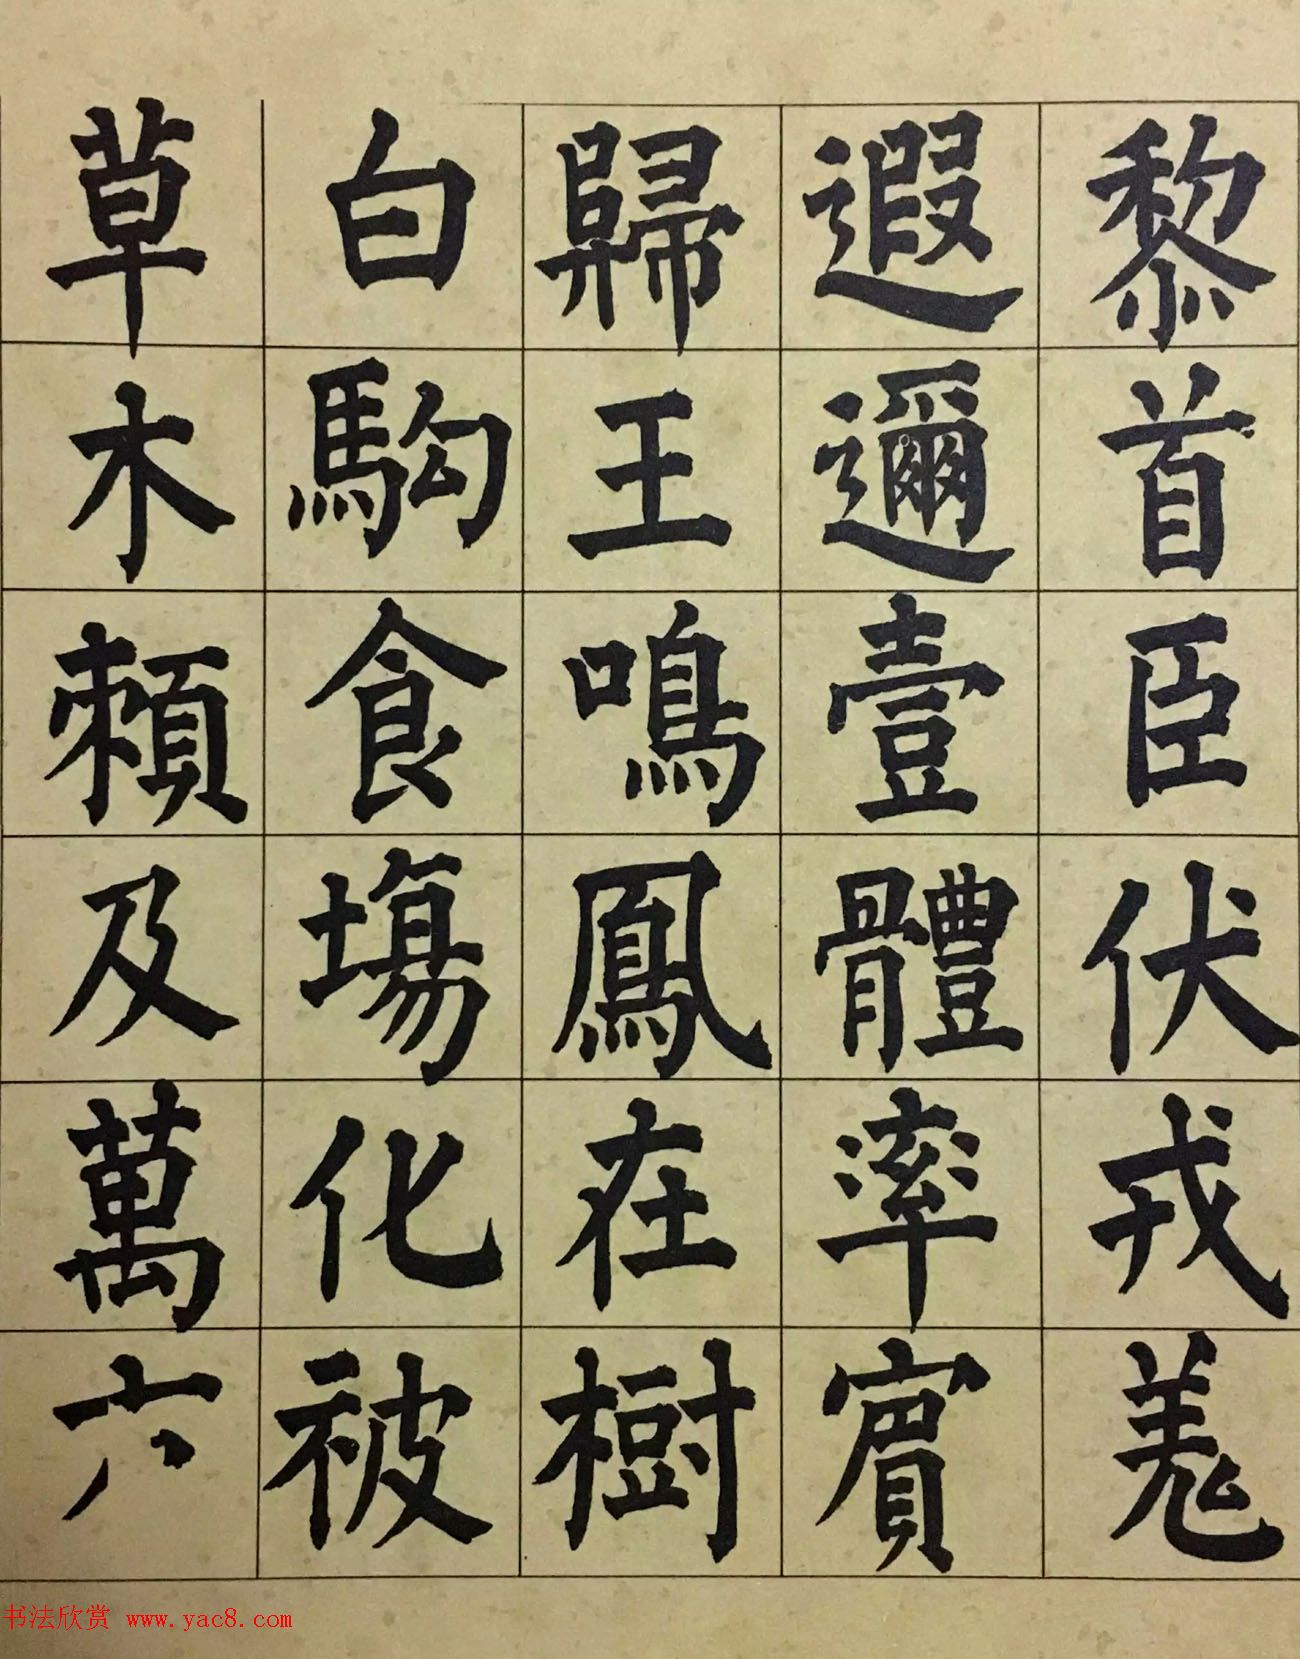 黎首臣伏戎羌
遐邇壹體率賓
歸王鳴鳳在樹
白駒食場化被
草木賴及萬六
书法欣赏 www.yac8.com